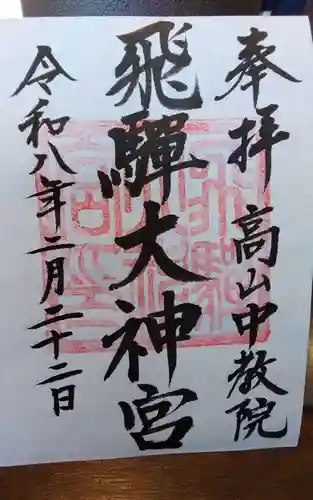 奉拝 高山中教院
飛驒大神宮
令和八年二月二十二日